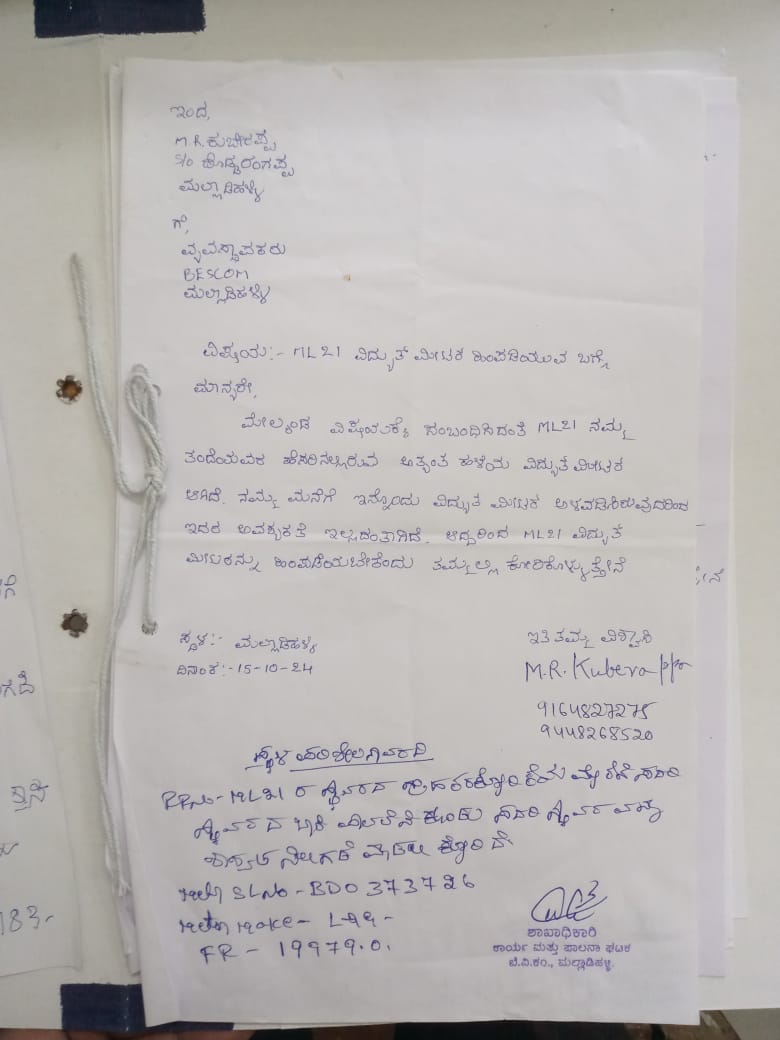 ಇಂದ,
M R. ಕುಬೇರಪ್ಪ
S/o ದೊಡ್ಡರಂಗಪ್ಪ
ಮಲ್ಲಾಡಿಹಳ್ಳಿ
ಗೆ,
ವ್ಯವಸ್ಥಾಪಕರು
BESCOM
ಮಲ್ಲಾಡಿಹಳ್ಳಿ
ವಿಷಯ:- ML21 ವಿದ್ಯುತ್ ಮೀಟರ ಹಿಂಪಡೆಯುವ ಬಗ್ಗೆ
ಮಾನ್ಯರೇ,
ಮೇಲ್ಕಂಡ ವಿಷಯಕ್ಕೆ ಸಂಬಂಧಿಸಿದಂತೆ ML21 ನಮ್ಮ
ತಂದೆಯವರ ಹೆಸರಿನಲ್ಲಿರುವ ಅತ್ಯಂತ ಹಳೆಯ ವಿದ್ಯುತ ಮೀಟರ
ಆಗಿದೆ. ನಮ್ಮ ಮನೆಗೆ ಇನ್ನೊಂದು ವಿದ್ಯುತ ಮೀಟರ ಅಳವಡಿಸಿರುವುದರಿಂದ
ಇದರ ಅವಶ್ಯಕತೆ ಇಲ್ಲದಂತಾಗಿದೆ. ಆದ್ದರಿಂದ ML21 ವಿದ್ಯುತ
ಮೀಟರನ್ನು ಹಿಂಪಡೆಯಬೇಕೆಂದು ತಮ್ಮಲ್ಲಿ ಕೋರಿಕೊಳ್ಳುತ್ತೇನೆ
ಸ್ಥಳ:- ಮಲ್ಲಾಡಿಹಳ್ಳಿ
ದಿನಾಂಕ:-15-10-24
ಇತಿ ತಮ್ಮ ವಿಶ್ವಾಸಿ
M.R. Kuberappa
9164827275
9448268520
ಸ್ಥಳ ಪರಿಶೀಲನಾ ವರದಿ
RRNo- ML21 ರ ಸ್ಥಾವರದ ಗ್ರಾಹಕರ ಕೋರಿಕೆಯ ಮೇರೆಗೆ ಸದರಿ
ಸ್ಥಾವರದ ಬಾಕಿ ಸದರಿ ಸ್ಥಾವರವನ್ನು
ಶಾಶ್ವತ ಕೋರಿದೆ
SLNo - BDO 373726
make - L&G -
FR - 19979.0.
ಶಾಖಾಧಿಕಾರಿ
ಕಾರ್ಯ ಮತ್ತು ಪಾಲನಾ ಘಟಕ
ಬೆ.ವಿ.ಕಂ., ಮಲ್ಲಾಡಿಹಳ್ಳಿ.
183-